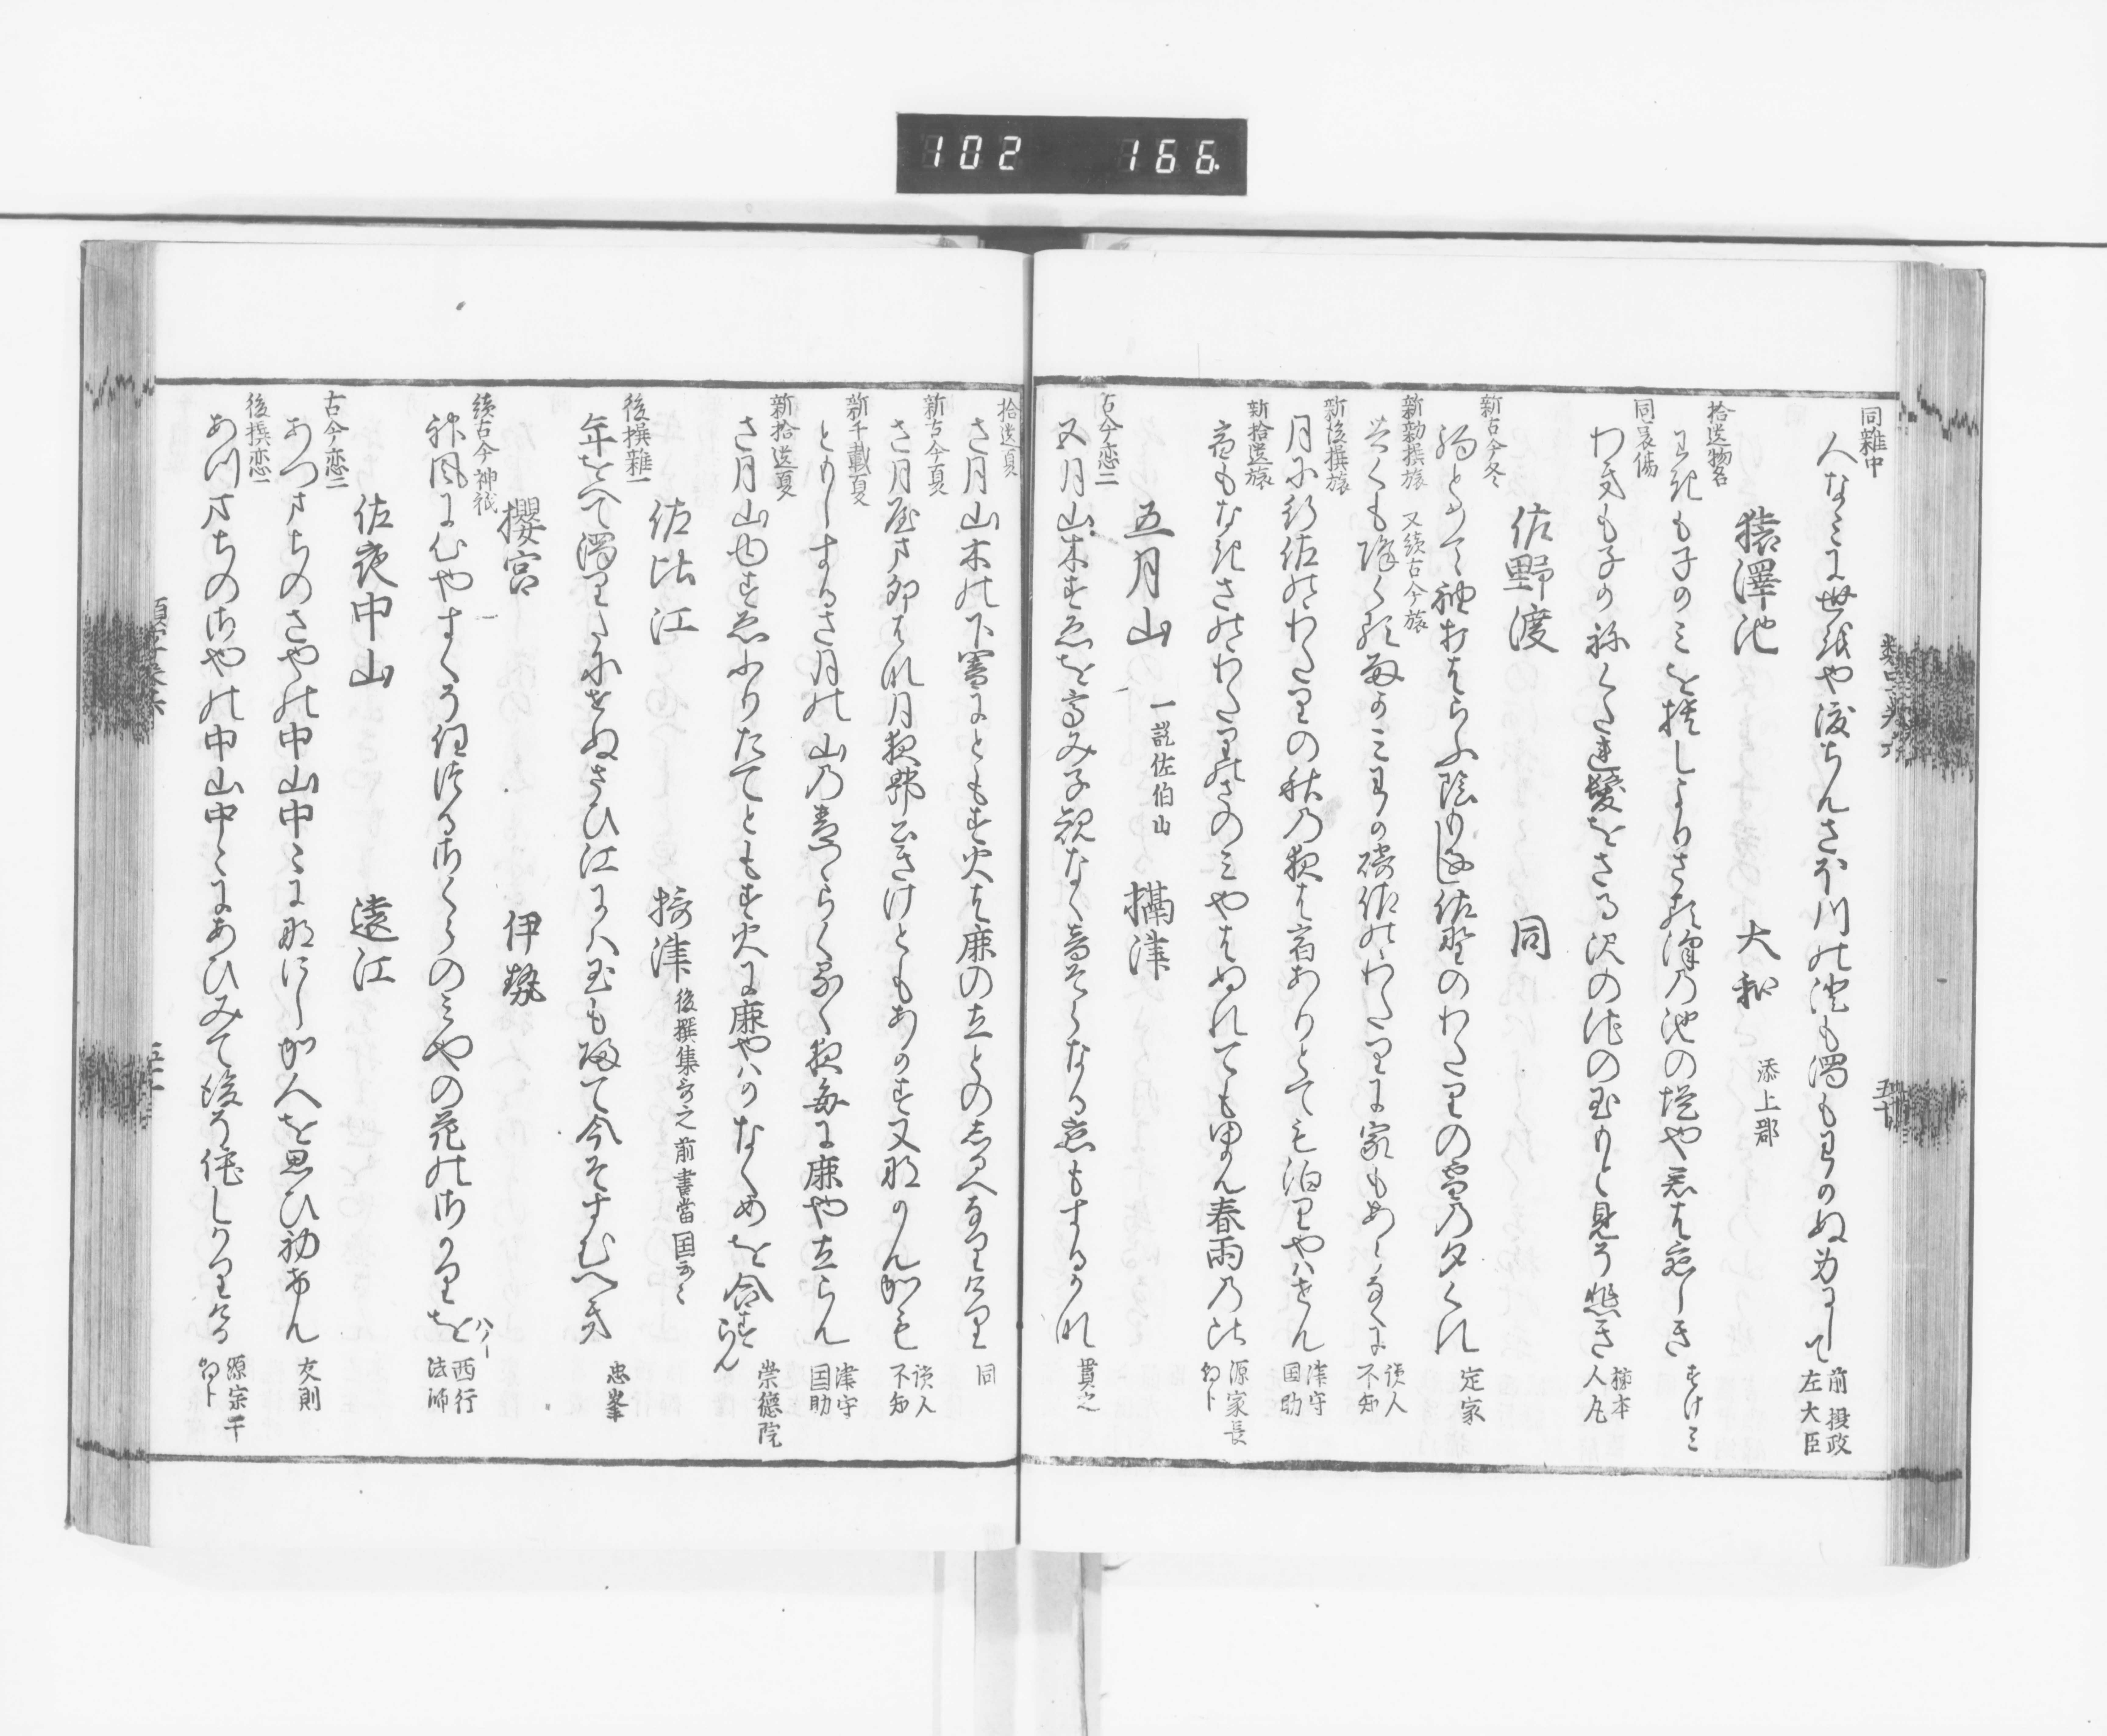 102 166
同雑中
人なみに世をや渡らんさほ川の澄も濁もわかぬ身にして 前摂政左大臣
猿澤池 大和 添上郡
拾遺物名
わきも子のみを捨しよりさる澤の池の堤や君は恋しき すけみ
同哀傷
わきも子かねくたれ髪をさる沢の池の玉もと見るそ悲き 柿本人丸
佐野渡 同
新古今冬
駒とめて袖打はらふ陰もなし佐野のわたりの雪乃夕くれ 定家
新勅撰旅 又続古今旅
苦くも降くる雨かみわの崎佐のわたりに家もあらなくに 読人不知
新後撰旅
月に行佐のわたりの秋乃夜は宿ありとても泊りやはせん 津守国助
新拾遺旅
宿もなきさのわたりのさのみやはぬれてもゆかん春雨乃比 源家長朝臣
五月山 一説佐伯山 攝津
古今恋二
五月山木すゑを高み子規なく音そらなる恋もするかな 貫之
拾遺夏
さ月山木の下闇にともす火は鹿の立とのしるへなりけり 同
新古今夏
さ月山卯の花月夜郭公きけともあかす又鳴かんかも 読人不知
新千載夏
ともしするさ月の山乃 夜毎に鹿や立らん 津守国助
新拾遺夏
さ月山ゆすゑふりたてともす火に鹿やはかなくめを合すらん 崇徳院
佐比江 摂津 後撰集哥之前書當国云々
後撰雑一
年をへて濁りたにせぬさひ江には玉も帰て今そすむへき 忠峯
櫻宮 伊勢
続古今神祇
神風に心やすくそ任つるさくらのみやの花のさかりを 西行法師
佐夜中山 遠江
古今恋二
あつまちのさやの中山中々に何しか人を思ひ初けん 友則
後撰恋一
あつまちのさやの中山中々にあひみて後そ侘しかりける 源宗于朝臣